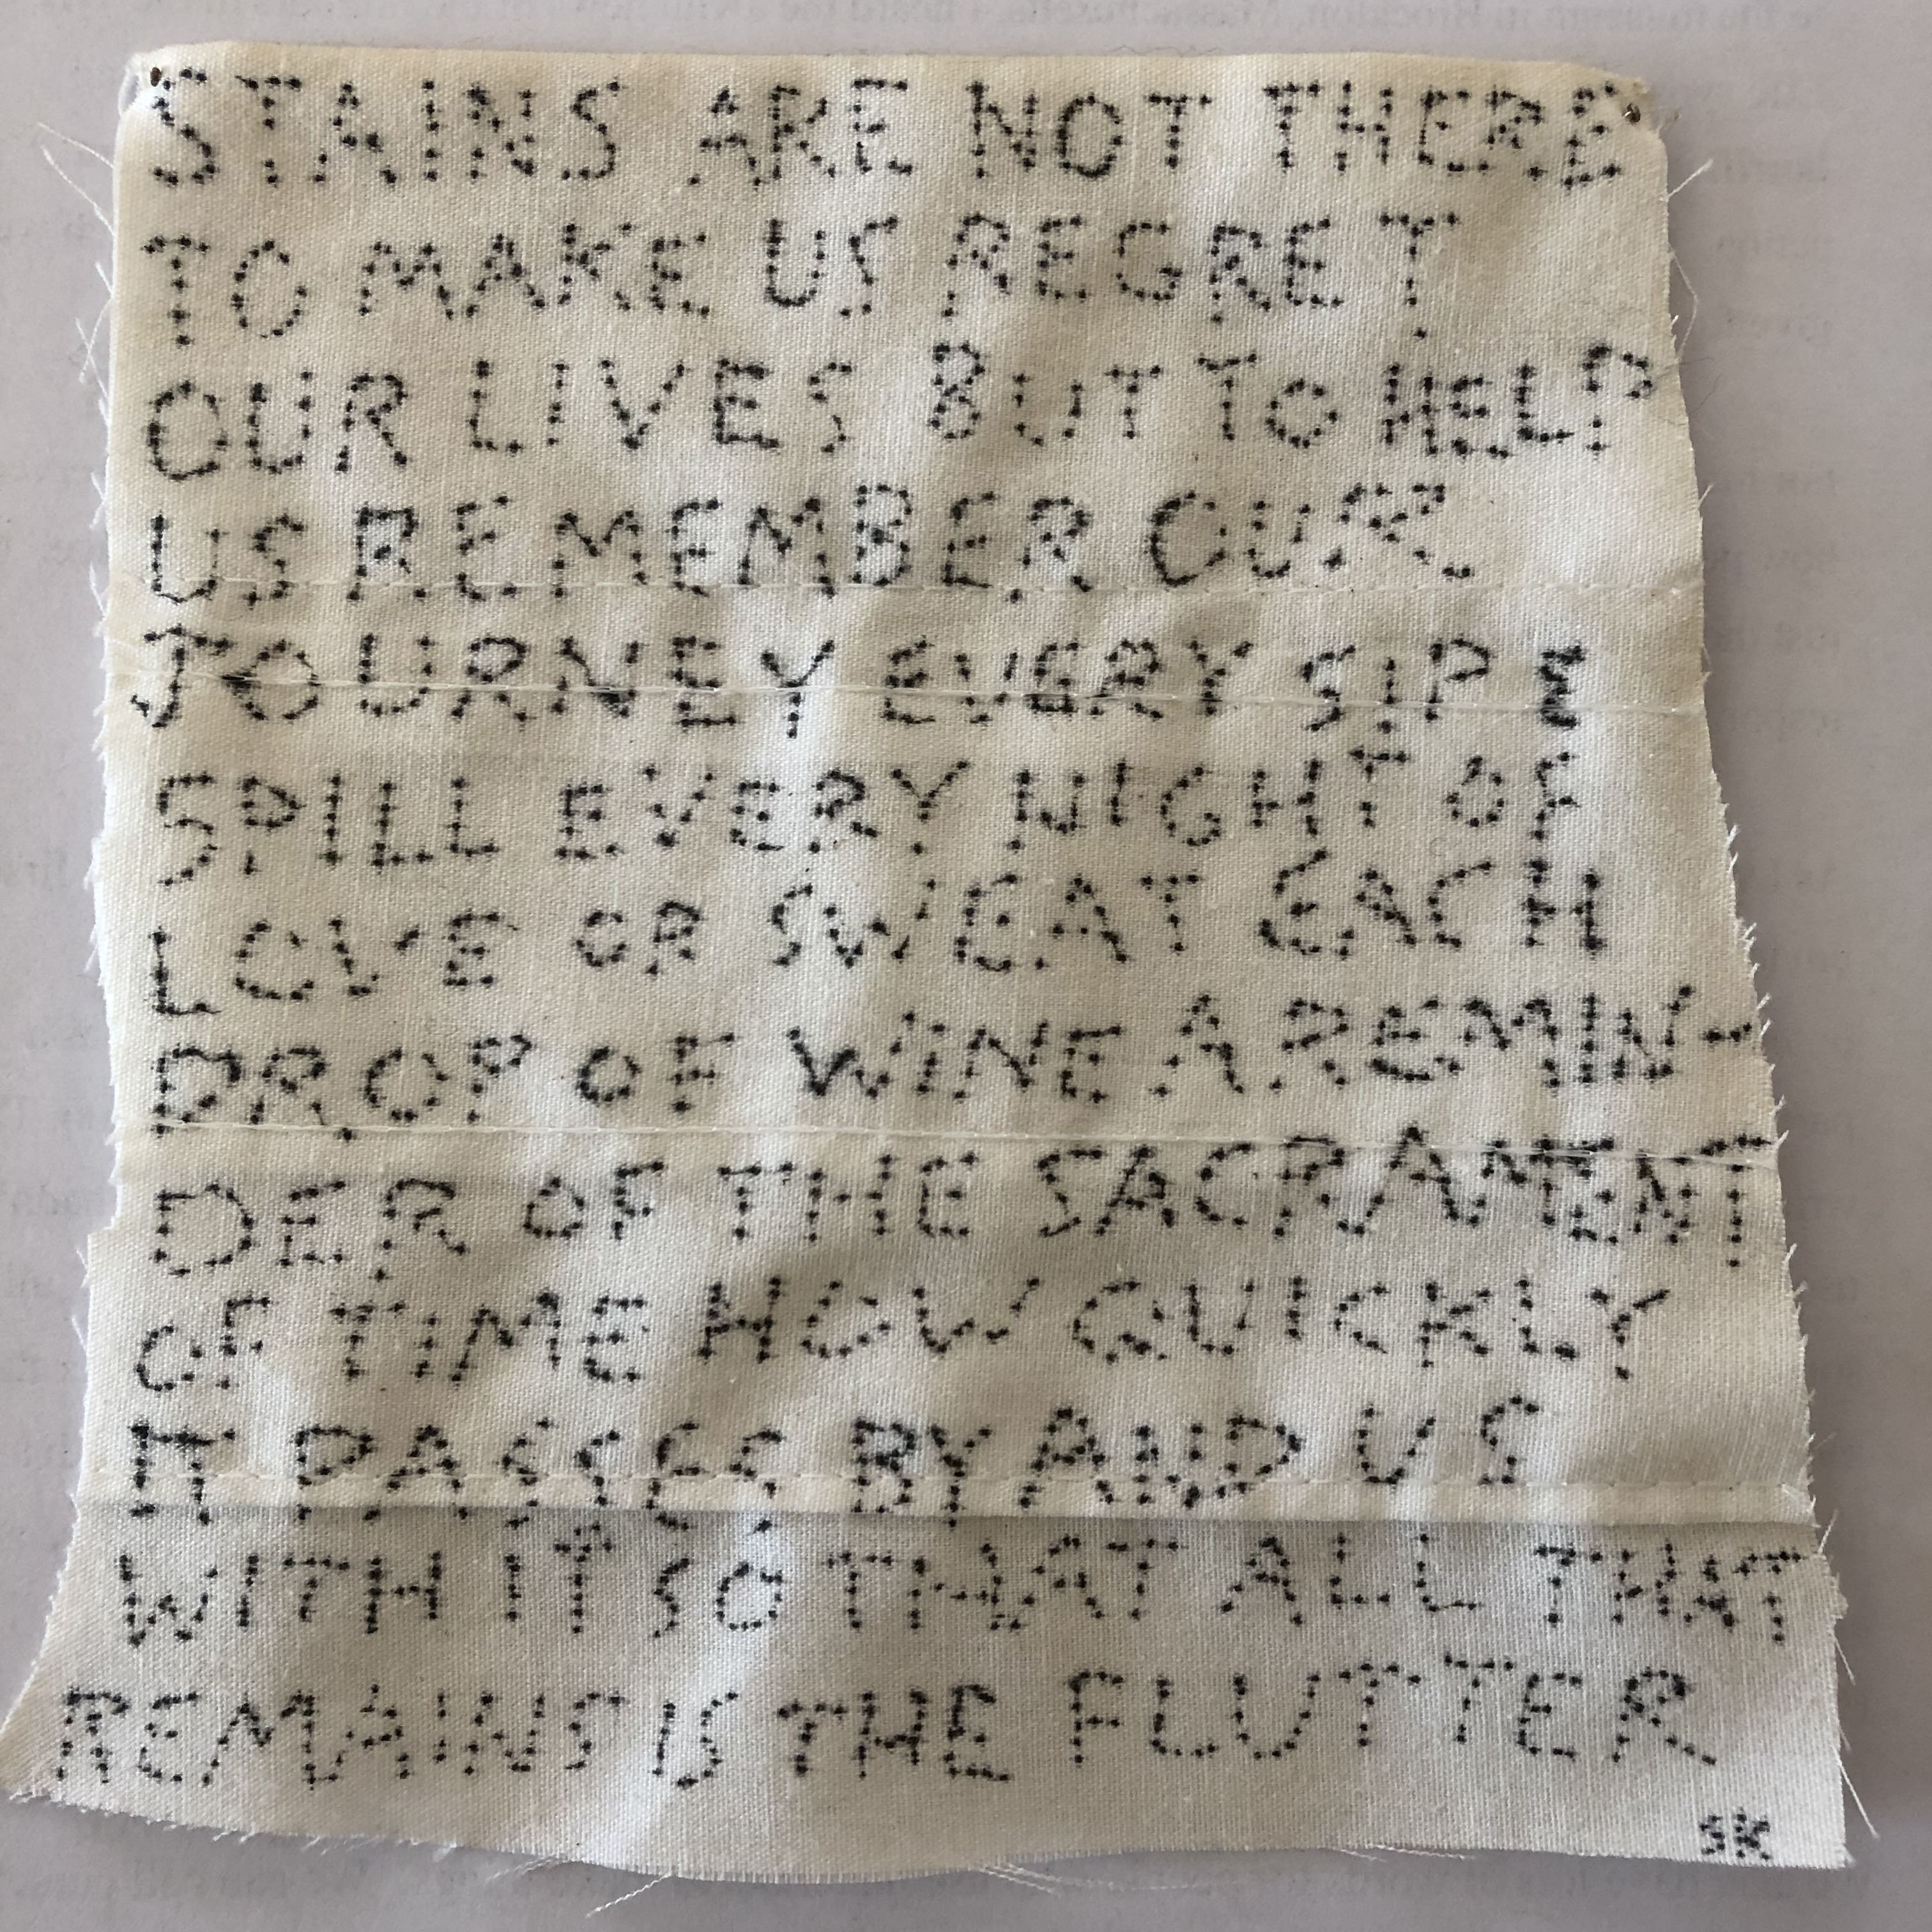 STAINS ARE NOT THERE
TO MAKE US REGRET
OUR LIVES BUT TO HELP
US REMEMBER OUR
JOURNEY EVERY SIP
SPILL EVERY NIGHT OF
LOVE OR SWEAT EACH
DROP OF WINE A REMIN-
DER OF THE SACRAMENT
OF TIME HOW QUICKLY
IT PASSES BY AND US
WITH IT SO THAT ALL THAT
REMAINS IS THE FLUTTER
SK